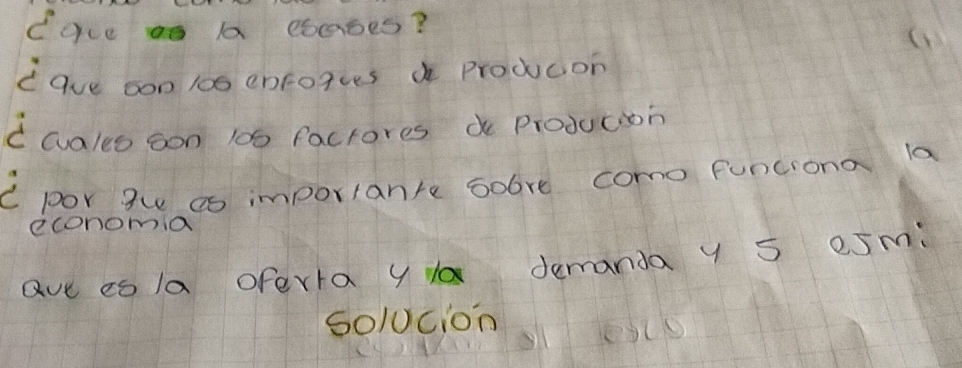 ¿que es la escases?
¿que son los enfoques de Producon
¿cuales son los factores de Producion
¿por que es importante sobre como funciona la
economia
que es la oferta y la demanda y 5 esmi
solución